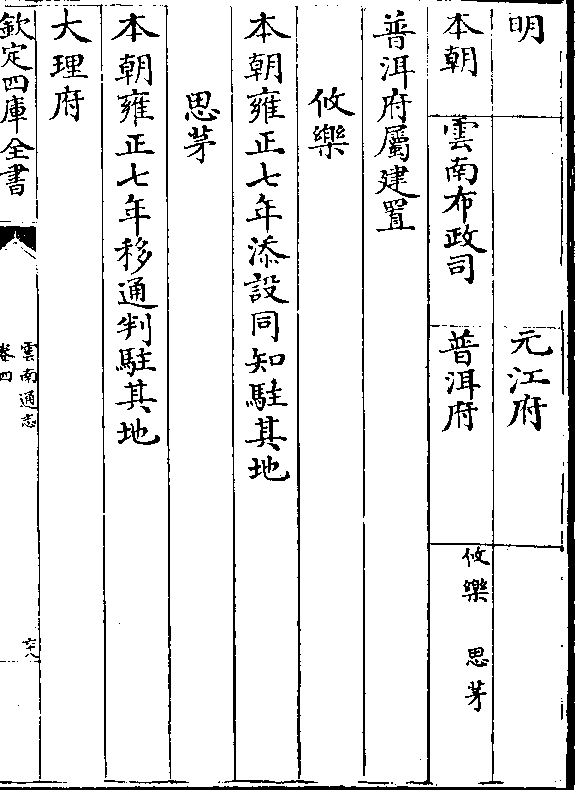 明
元江府
本朝
雲南布政司
普洱府
攸樂　思茅
普洱府屬建置
攸樂
本朝雍正七年添設同知駐其地
思茅
本朝雍正七年移通判駐其地
大理府
欽定四庫全書
雲南通志
卷四